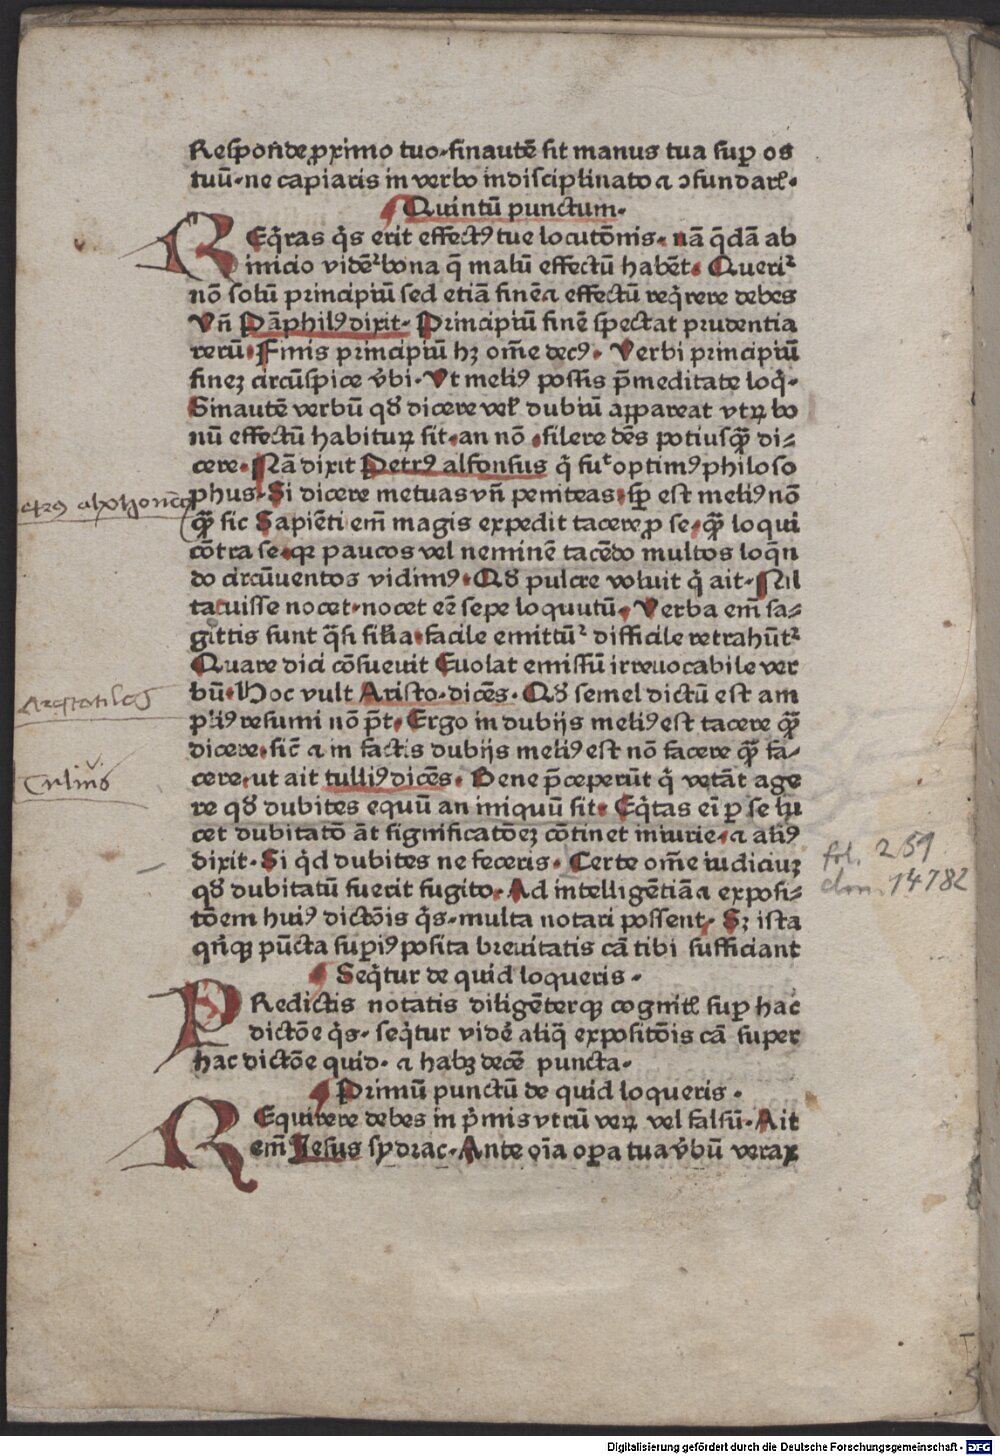 Responde ꝓximo tuo·sinautē sit manus tua suꝑ os
tuū·ne capiaris in verbo indisciplinato ⁊ ↄfundarꝭ·
Quintū punctum·
REq̇ras q̇s erit effectꝰ tue locutōnis· nā q̄dā ab
inicio vidēt᷑ bona q̄ malū effectū habēt· Querit᷑
nō solū principiū sed etiā finē ⁊ effectū req̇rere debes
Vn̄ Pāphilꝰ dixit· Principiū finē spectat prudentia
rerū· Finis principiū hꝫ om̄e decꝰ· Verbi principiū
fineꝫ circūspice v̄bi· Vt meliꝰ possis p̄meditate loq̇·
Sinautē verbū qḋ dicere velꝭ dubiū appareat vtꝝ bo
nū effectū habiturꝝ sit· an nō· silere dēs potiusqꝫ̄ di⸗
cere· Nā dixit Petrꝰ alfonsus q̇ fuit optimꝰ philoso
phus· Si dicere metuas vn̄ peniteas· sꝑ est meliꝰ nō
qꝫ̄ sic Sapiēti em̄ magis expedit tacere ꝓ se· qꝫ̄ loqui
cōtra se· qꝛ paucos vel neminē tacēdo multos loq̄n
do circūuentos vidimꝰ· Qḋ pulcre voluit q̇ ait· Nil
tacuisse nocet· nocet eē sepe loquutū· Verba em̄ sa⸗
gittis sunt q̄si sil̄ia· facile emittūt᷑ difficile retrahūt᷑
Quare dici cōsueuit Euolat emissū irreuocabile ver
bū· Hoc vult Aristo· dicēs· Qḋ semel dictū est am
pliꝰ resumi nō p̄t· Ergo in dubijs meliꝰ est tacere qꝫ̄
dicere· sic̄ ⁊ in factis dubijs meliꝰ est nō facere qꝫ̄ fa⸗
cere· ut ait tulliꝰ dicēs· Bene p̄ceperūt q̇ vetāt age
re qḋ dubites equū an iniquū sit· Eq̇tas ei̅ ꝑ se lu
cet dubitatō āt significatōeꝫ cōtinet iniurie· ⁊ aliꝰ
dixit· Si q̇d dubites ne feceris· Certe om̄e iudiciuꝫ
qḋ dubitatū fuerit fugito· Ad intelligētiā ⁊ exposi⸗
tōem huiꝰ dictōis q̇s· multa notari possent· Sꝫ ista
qn̄qꝫ pūcta suꝑiꝰ posita breuitatis cā tibi sufficiant
Seq̇tur de quid loqueris·
PRedictis notatis diligēterqꝫ cognitꝭ suꝑ hac
dictōe q̇s· seq̇tur vidē aliq̄ expositōis cā super
hac dictōe quid· ⁊ habꝫ decē puncta·
Primū punctū de quid loqueris·
REquirere debes in ṗmis vtrū verꝝ vel falsū· Ait
em̄ Jesus sydrac· Ante oı̄a oꝑa tua v̄bū verax
petrꝰ alphoncꝰ
Arestotiles
Tulius
fol. 251
clm. 14782
Digitalisierung gefördert durch die Deutsche Forschungsgemeinschaft - DFG